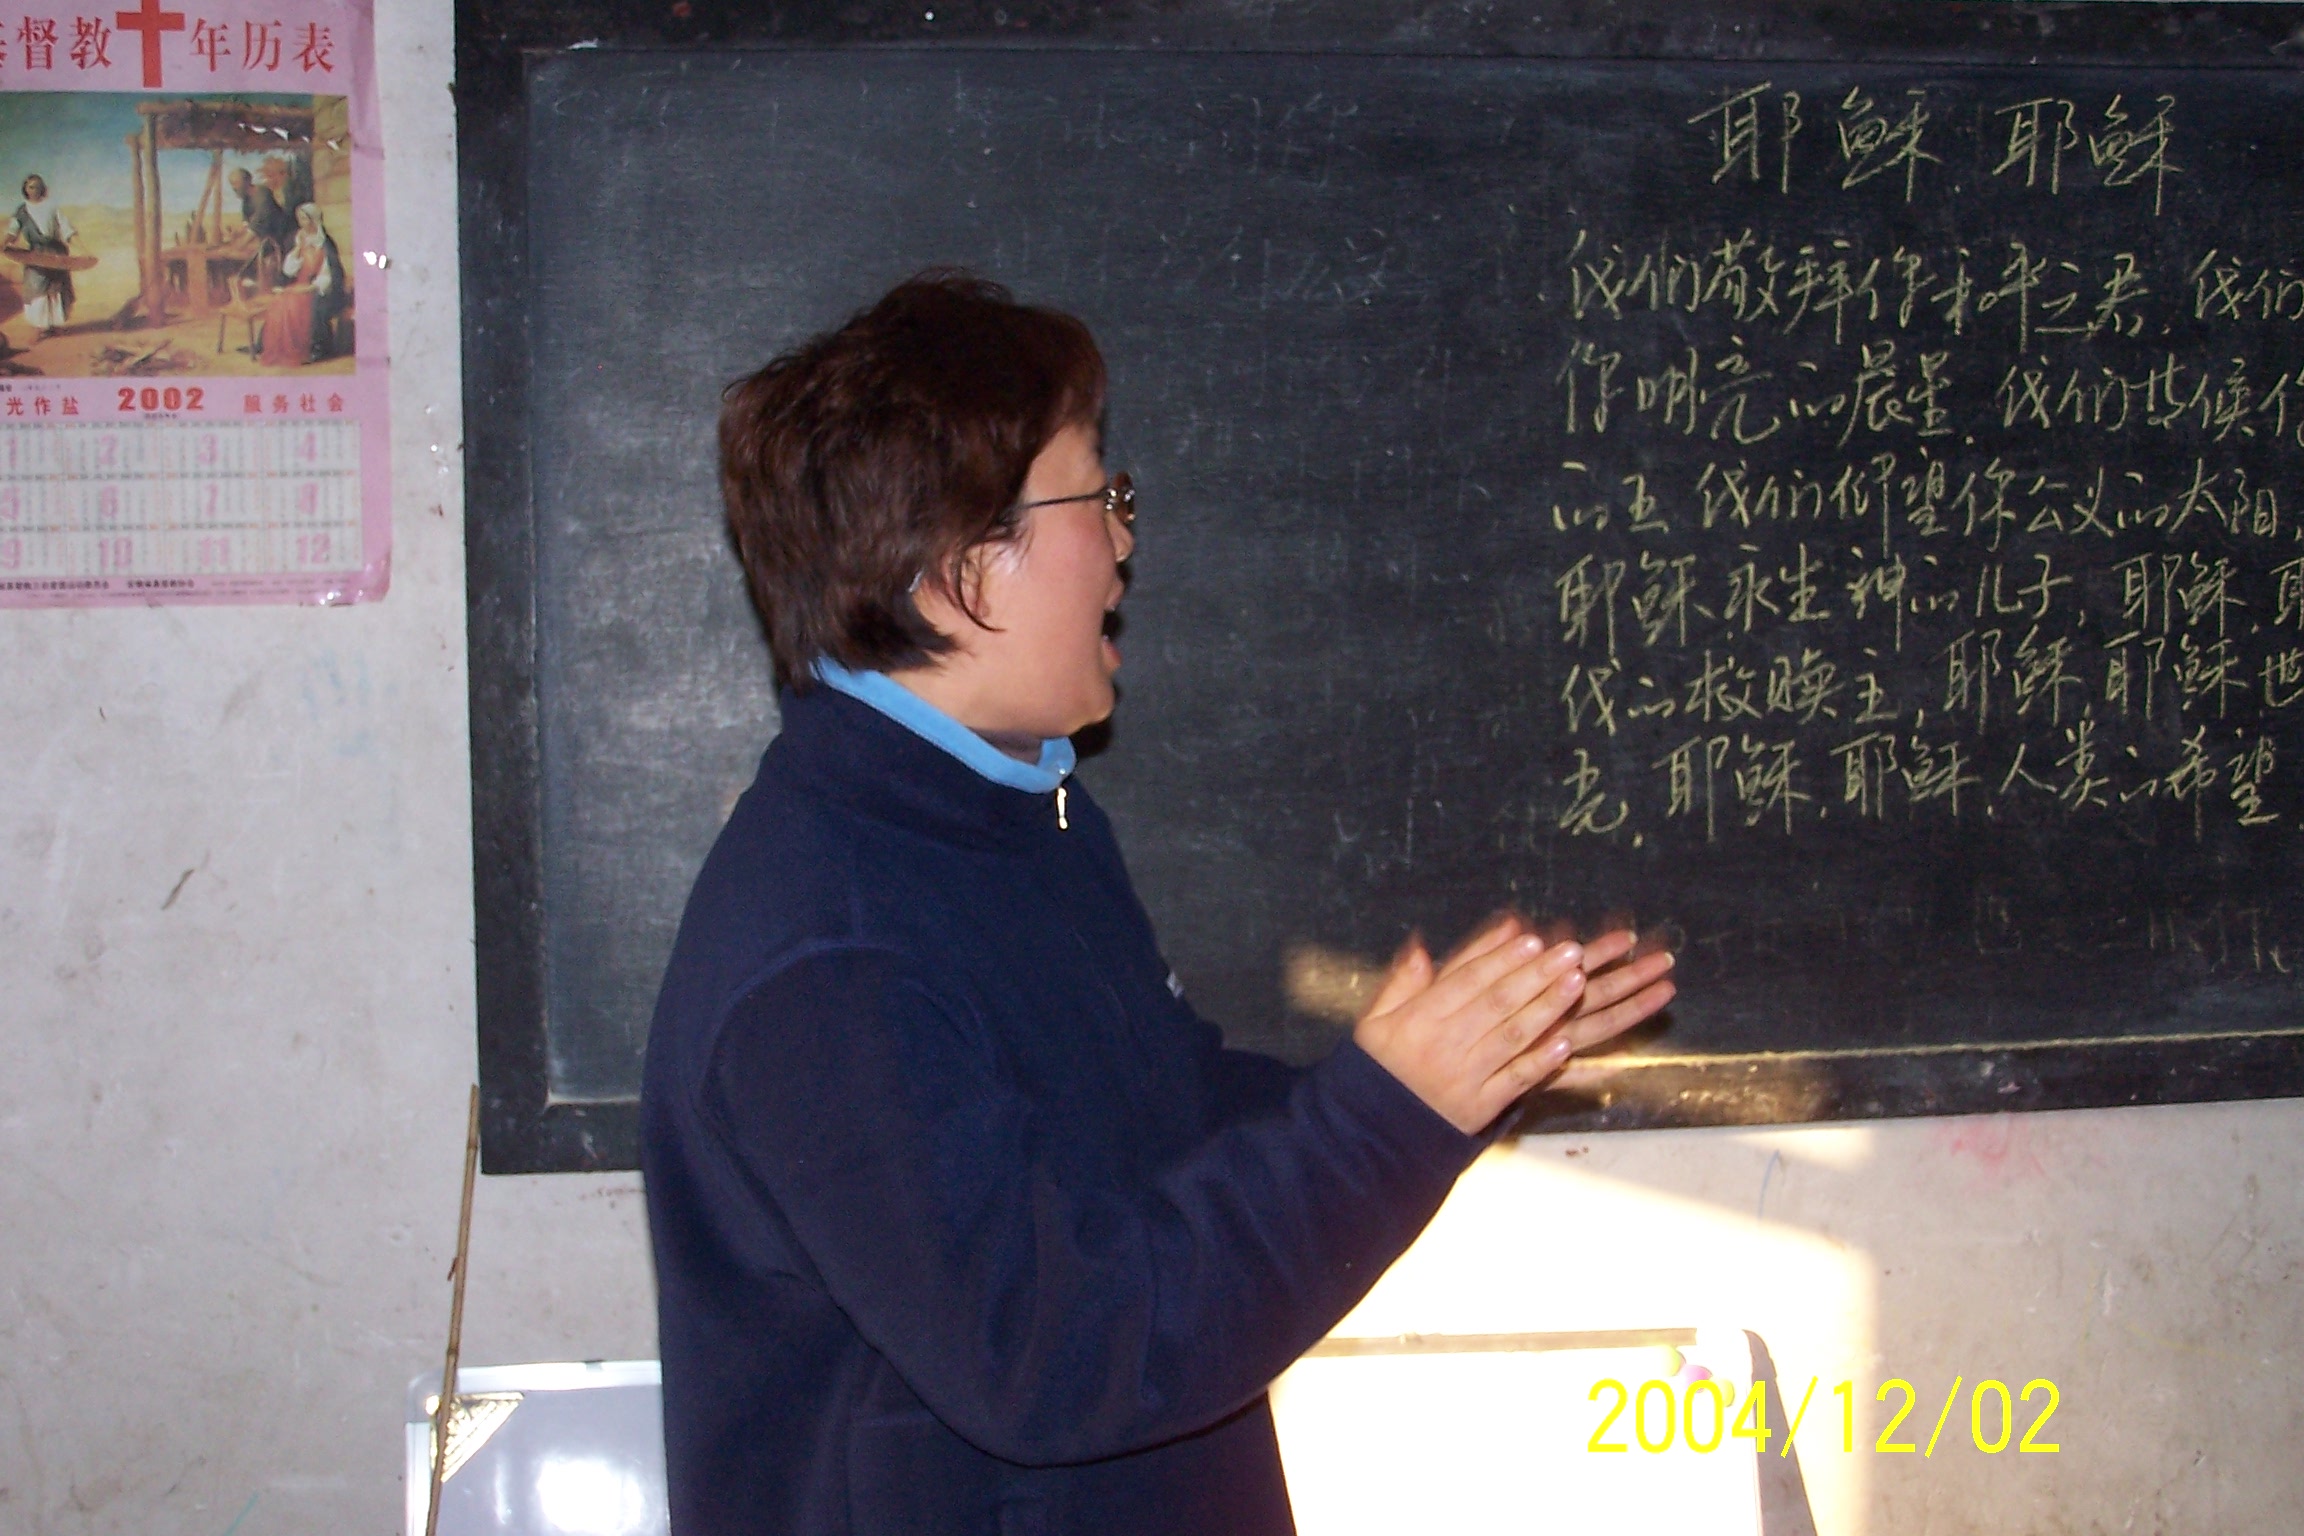 督教十年历表
光作盐 2002 服务社会
1 2 3 4
5 6 7 8
9 10 11 12
耶稣.耶稣
我们敬拜你和平之君.我们
你明亮的晨星.我们等候你
的王 我们仰望你公义的太阳.
耶稣.永生神的儿子,耶稣.耶
我的救赎主,耶稣,耶稣世
光.耶稣.耶稣.人类的希望.
2004/12/02